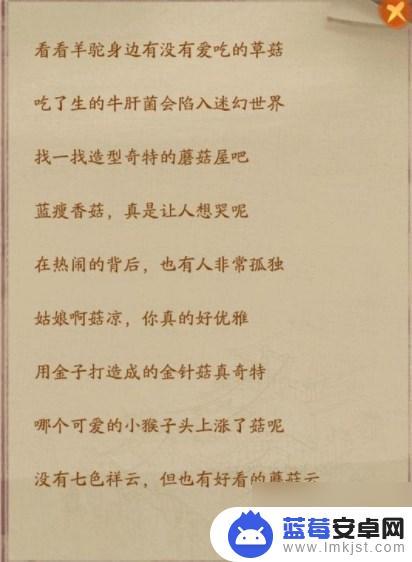 看看羊驼身边有没有爱吃的草菇
吃了生的牛肝菌会陷入迷幻世界
找一找造型奇特的蘑菇屋吧
蓝瘦香菇，真是让人想哭呢
在热闹的背后，也有人非常孤独
姑娘啊菇凉，你真的好优雅
用金子打造成的金针菇真奇特
哪个可爱的小猴子头上涨了菇呢
没有七色祥云，但也有好看的蘑菇云
蓝莓安卓网
www.lmkjst.com